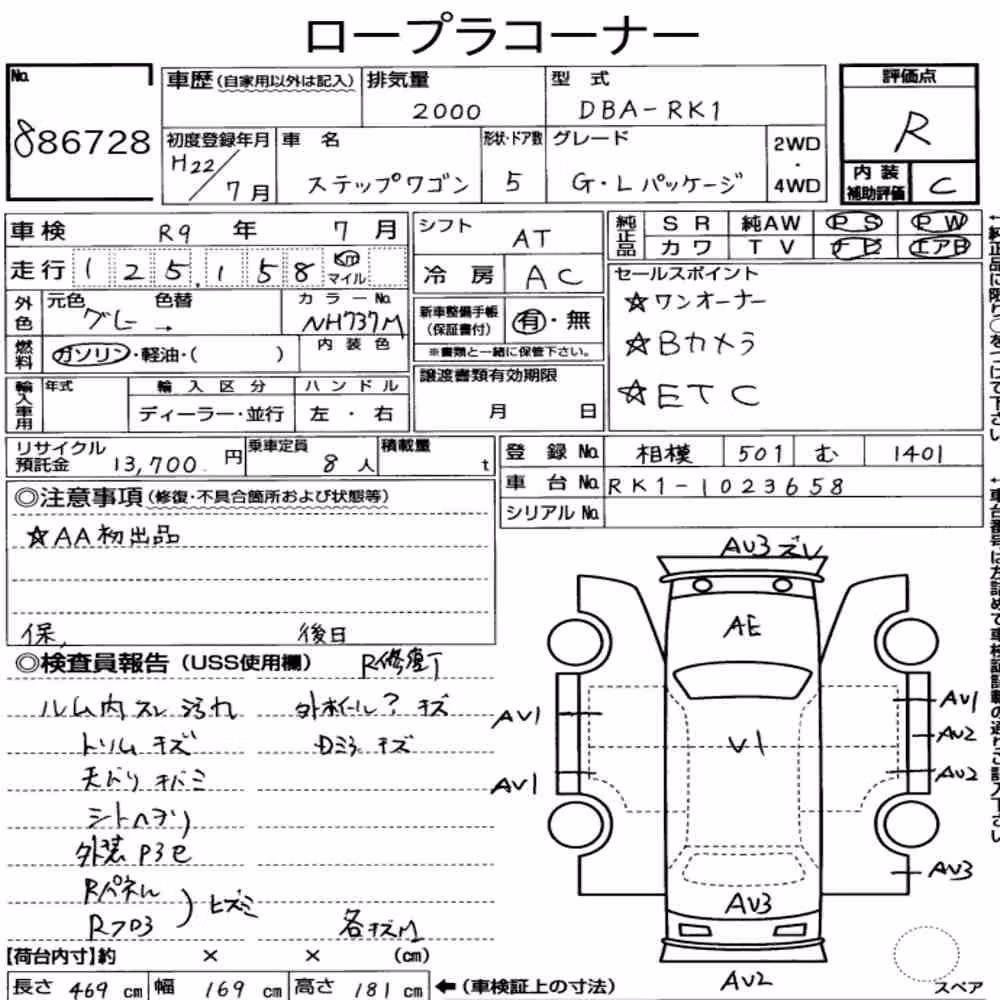 ロープラコーナー
No.
886728
車歴(自家用以外は記入)
排気量
2000
型式
DBA-RK1
評価点
R
初度登録年月
H22/7月
車名
ステップワゴン
形状・ドア数
5
グレード
G・Lパッケージ
2WD
・
4WD
内装
補助評価
C
車検 R9年 7月
走行 125,158 Km
マイル
シフト AT
冷房 AC
純正品
SR 純AW PS PW
カワ TV ナビ エアB
外色
元色
グレー →
色替
カラーNo.
NH737M
燃料
ガソリン・軽油・( )
内装色
新車整備手帳
(保証書付)
有・無
※書類と一緒に保管下さい。
セールスポイント
☆ワンオーナー
☆Bカメラ
☆ETC
輸入車用
年式
輸入区分
ディーラー・並行
ハンドル
左・右
譲渡書類有効期限
月 日
リサイクル
預託金 13,700 円
乗車定員
8人
積載量
t
登録No. 相模 501 む 1401
車台No. RK1-1023658
シリアルNo.
◎注意事項(修復・不具合箇所および状態等)
☆AA初出品
保, 後日
◎検査員報告(USS使用欄)
R修復丁
ル厶内 スレ 汚れ
トリム キズ
シトヘタリ
Rパネル
Rフロ3
ヒズミ
Dミラ キズ
各キズM
AU3 ズレ
AE
AV1
AV1
V1
AV1
AV2
AV2
AV3
AV3
AV2
スペア
【荷台内寸】約 × × (cm)
長さ 469 cm 幅 169 cm 高さ 181 cm ←(車検証上の寸法)